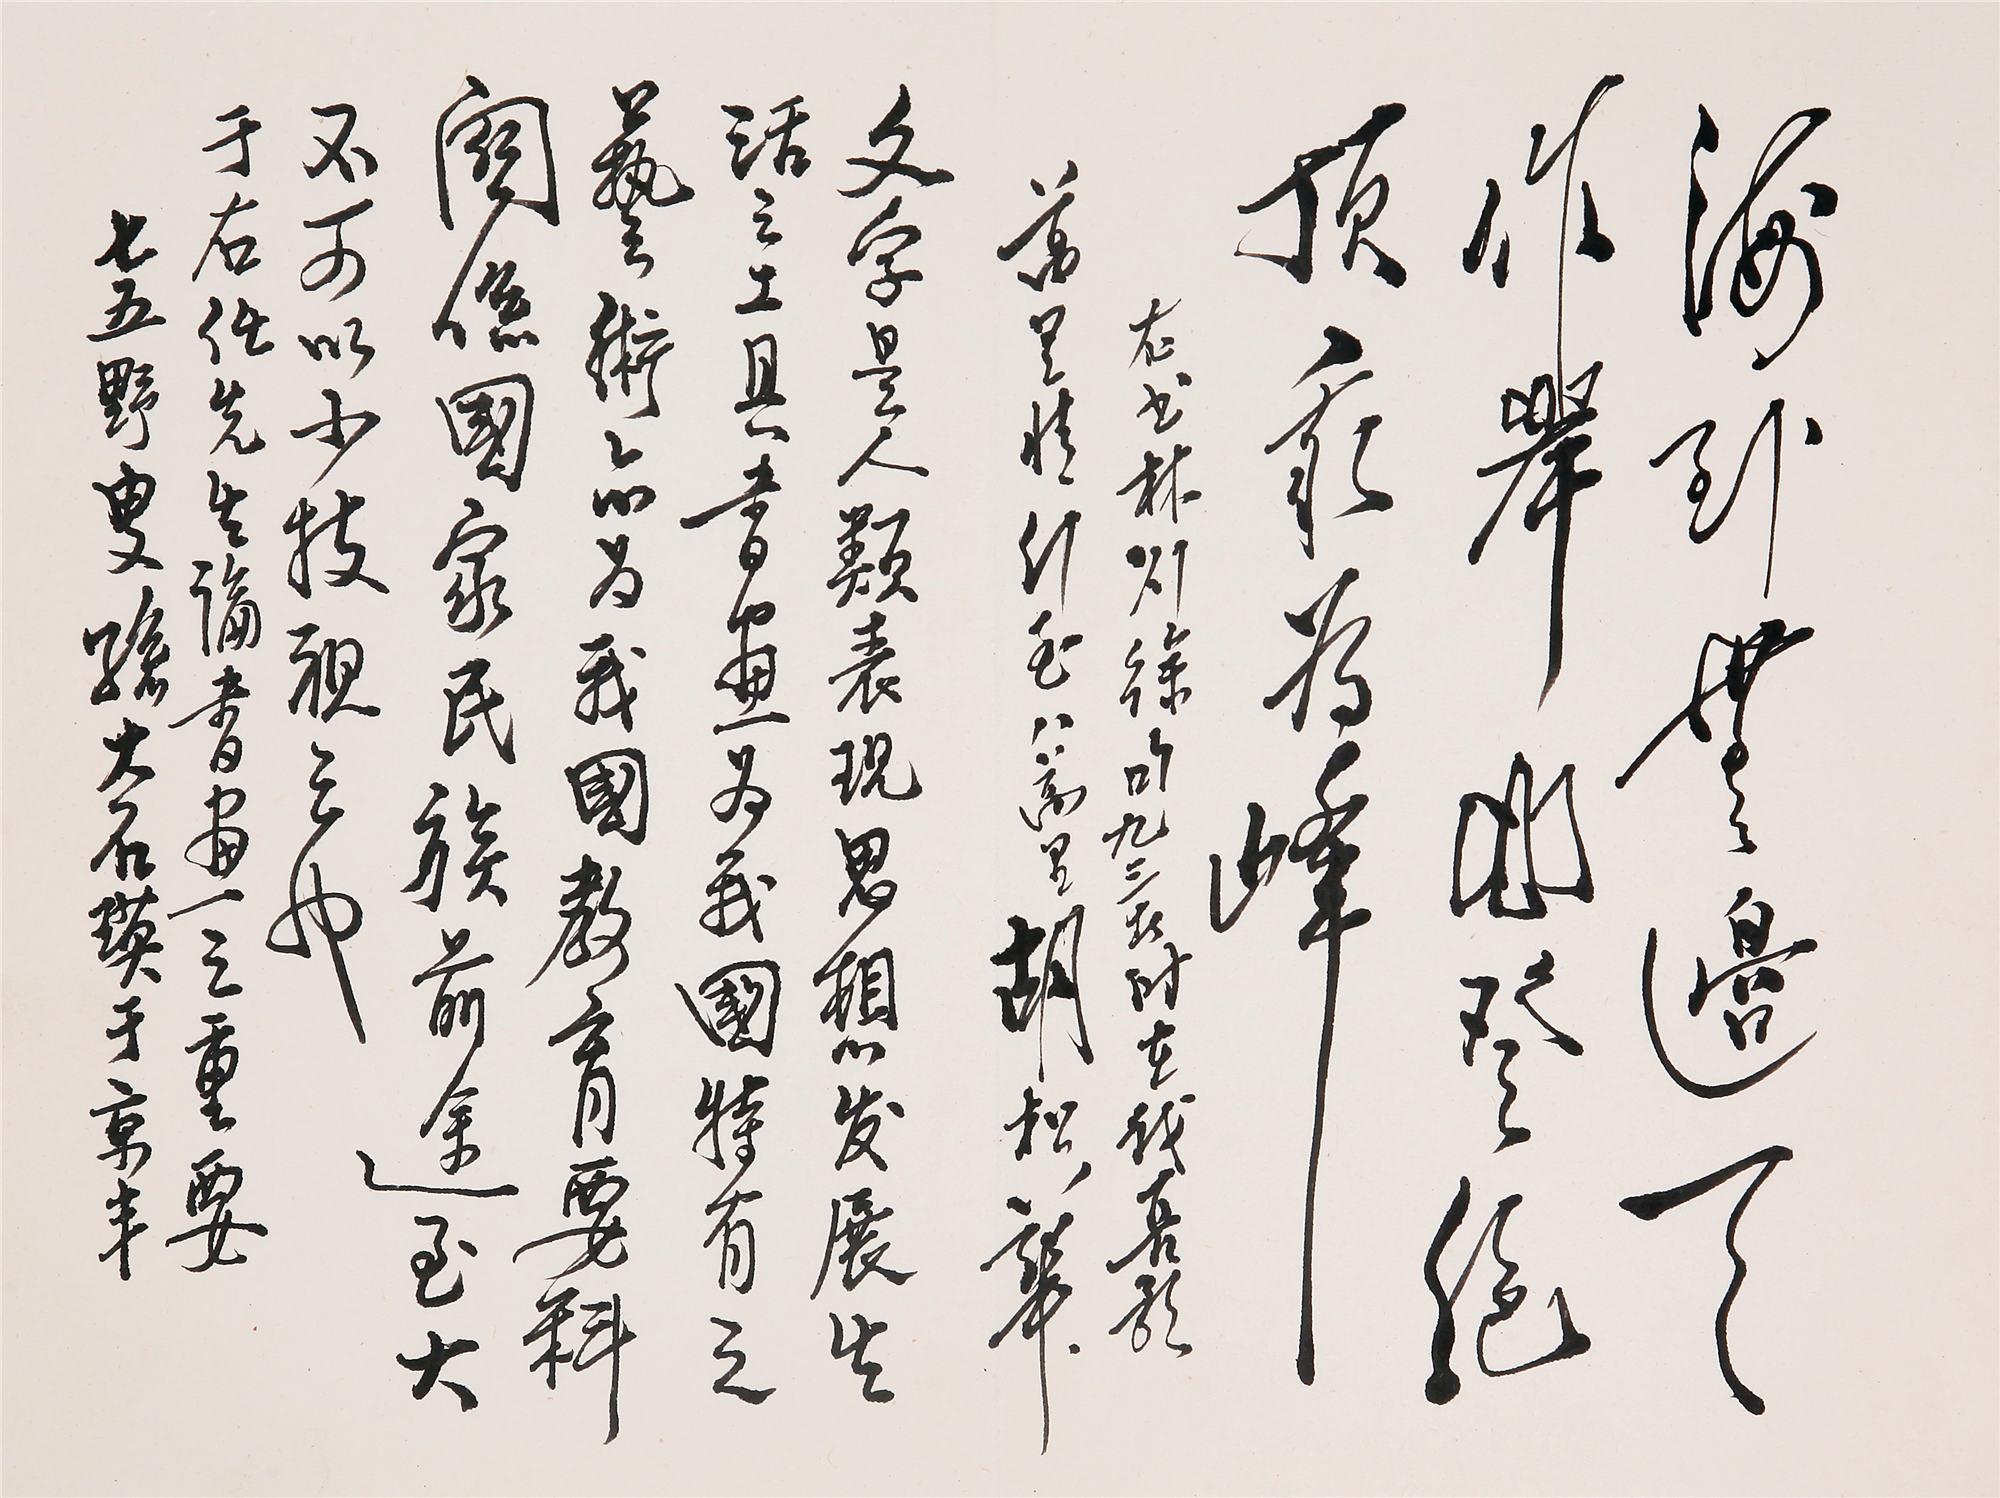 海到無邊天
作岸山登絕
頂我為峰
右書林則徐 九三 時在
萬里 胡松華
文字是人類表現思想發展生
活之工具書畫為我國特有之
藝術亦為我國教育要科
關係國家民族前途至大
不可以少技視之也
于右任先生論書畫一之重要
七五野叟孫大石撰于京半